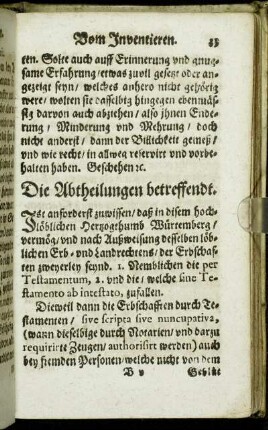 Vom Inventieren. 33
ten. Solte auch auff Erinnerung und gnug-
same Erfahrung, etwas zuvil gesetzt oder an-
gezeigt seyn, welches anhero nicht gehörig
were, wolten sie dasselbig hingegen ebenmäs-
sig darvon auch abziehen, also ihnen Ende-
rung, Minderung und Mehrung, doch
nicht anderst, dann der Billichkeit gemeß,
und wie recht, in allweg reservirt und vorbe-
halten haben. Geschehen ꝛc.
Die Abtheilungen betreffendt.
Ist anforderst zuwissen, daß in disem hoch-
löblichen Herzogthumb Würtemberg,
vermög, und nach Außweisung desselben löb-
lichen Erb- und Landrechtens, der Erbschaf-
ten zweyerley seynd. 1. Nemblichen die per
Testamentum, 2. und die, welche sine Te-
stamento ab intestato, zufallen.
Dieweil dann die Erbschafften durch Te-
stamenten, sive scripta sive nuncupativa,
(wann dieselbige durch Notarien, und darzu
requirirte Zeugen, authorisirt werden) auch
bey frembden Personen, welche nicht von dem
B v Geblüt